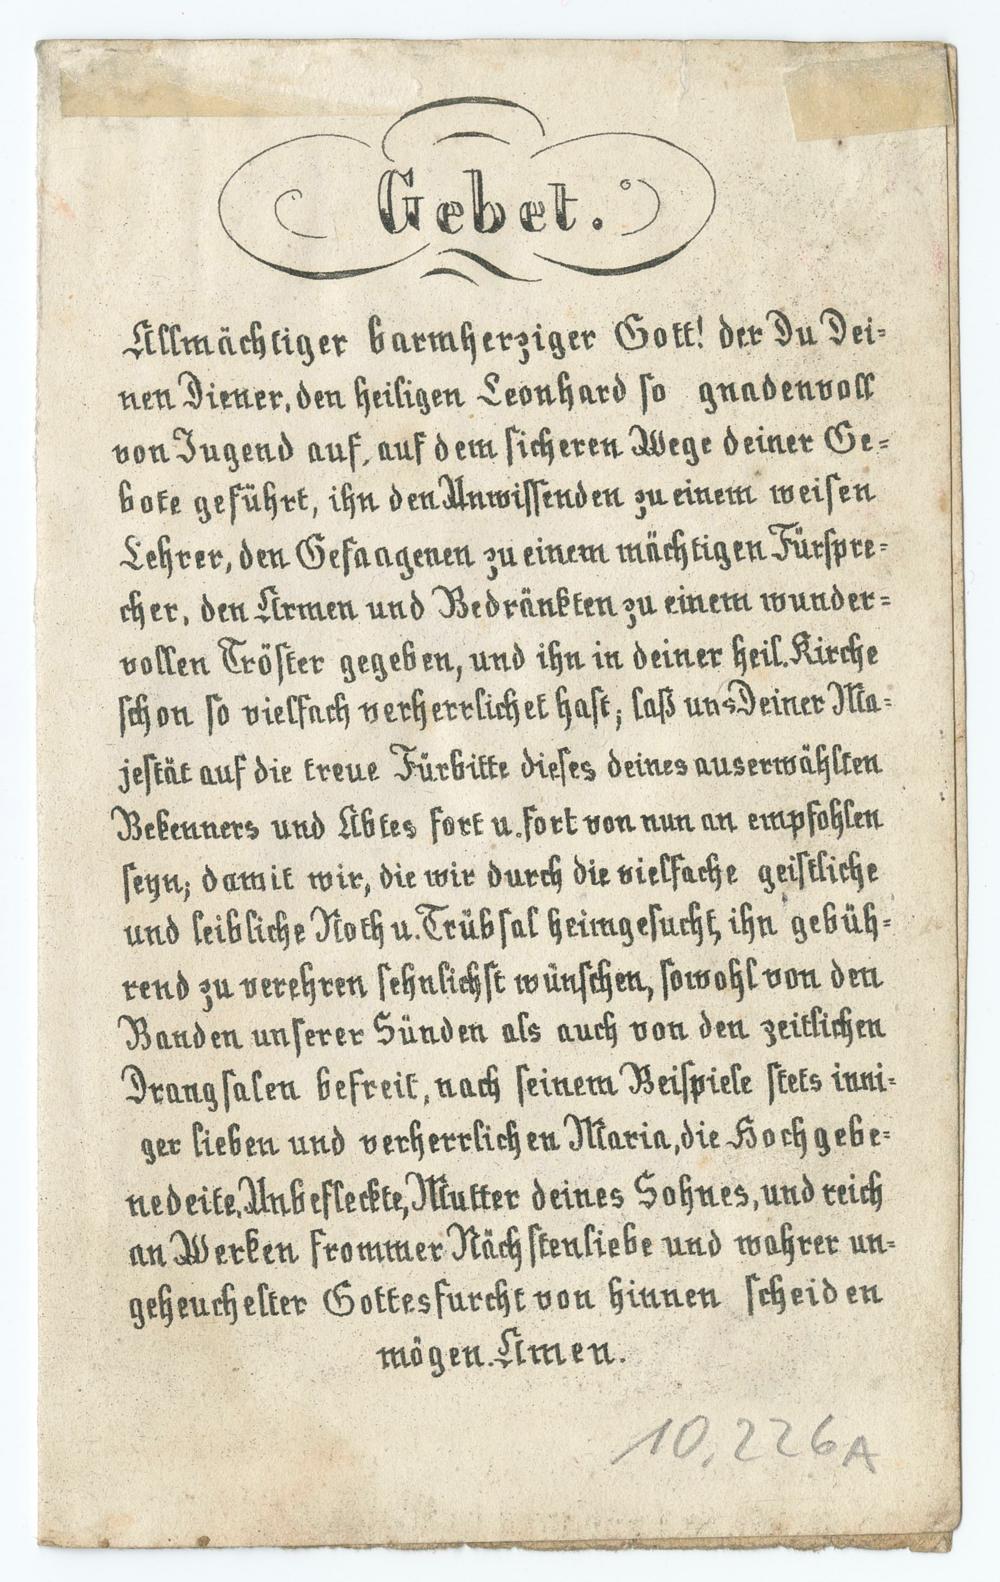 Gebet.
Allmächtiger barmherziger Gott! der Du Dei=
nen Diener, den heiligen Leonhard so gnadenvoll
von Jugend auf, auf dem sicheren Wege deiner Ge=
bote geführt, ihn den Unwissenden zu einem weisen
Lehrer, den Gefangenen zu einem mächtigen Fürspre=
cher, den Armen und Bedränkten zu einem wunder=
vollen Tröster gegeben, und ihn in deiner heil. Kirche
schon so vielfach verherrlichet hast; laß uns Deiner Ma=
jestät auf die treue Fürbitte dieses deines auserwählten
Bekenners und Abtes fort u. fort von nun an empfohlen
seyn; damit wir, die wir durch die vielfache geistliche
und leibliche Noth u. Trübsal heimgesucht, ihn gebüh=
rend zu verehren sehnlichst wünschen, sowohl von den
Banden unserer Sünden als auch von den zeitlichen
Drangsalen befreit, nach seinem Beispiele stets inni=
ger lieben und verherrlichen Maria, die Hochgebe=
nedeite, Unbefleckte, Mutter deines Sohnes, und reich
an Werken frommer Nächstenliebe und wahrer un=
geheuchelter Gottesfurcht von hinnen scheiden
mögen. Amen.
10,226A